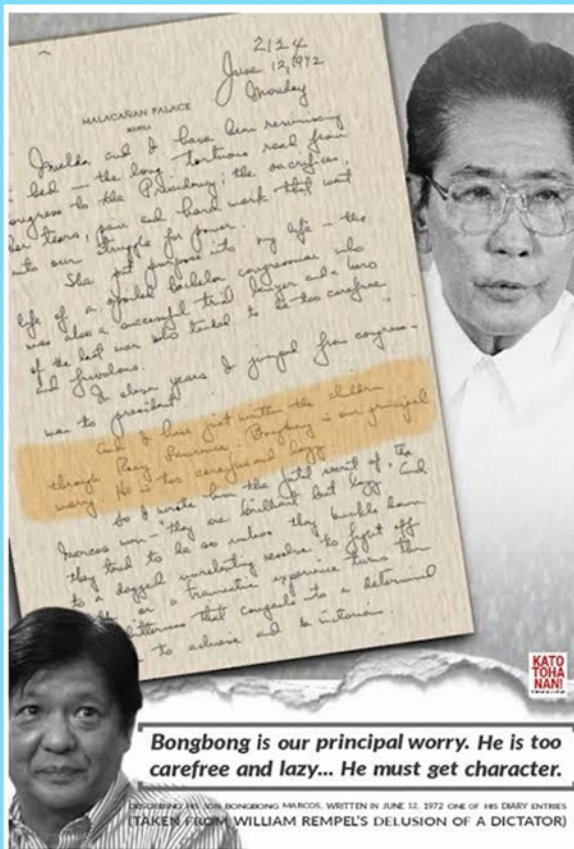 2124
June 12, 1972
Monday
MALACAÑAN PALACE
MANILA
Imelda and I have been reminiscing
in bed – the long tortuous road from
Congress to the Presidency; the sacrifices,
her tears, pain and hard work that went
into our struggle for power.
She put purpose into my life – the
life of a spoiled bachelor congressman who
was also a successful trial lawyer and a hero
of the last war who tended to be too carefree
and frivolous.
In eleven years I jumped from congress-
man to president.
And I have just written the children
through Rosy Lawrence. Bongbong is our principal
worry. He is too carefree and lazy.
So I wrote him the fatal secret of the
Marcos men – "they are brilliant but lazy and
they tend to be so unless they buckle down
to a dogged unrelenting resolve to fight off
or a traumatic experience turns them
bitterness that congeals into a determined
to achieve and be victorious.
KATO
TOHA
NAN!
Bongbong is our principal worry. He is too
carefree and lazy... He must get character.
DESCRIBING HIS SON BONGBONG MARCOS, WRITTEN IN JUNE 12, 1972 ONE OF HIS DIARY ENTRIES
(TAKEN FROM WILLIAM REMPEL'S DELUSION OF A DICTATOR)